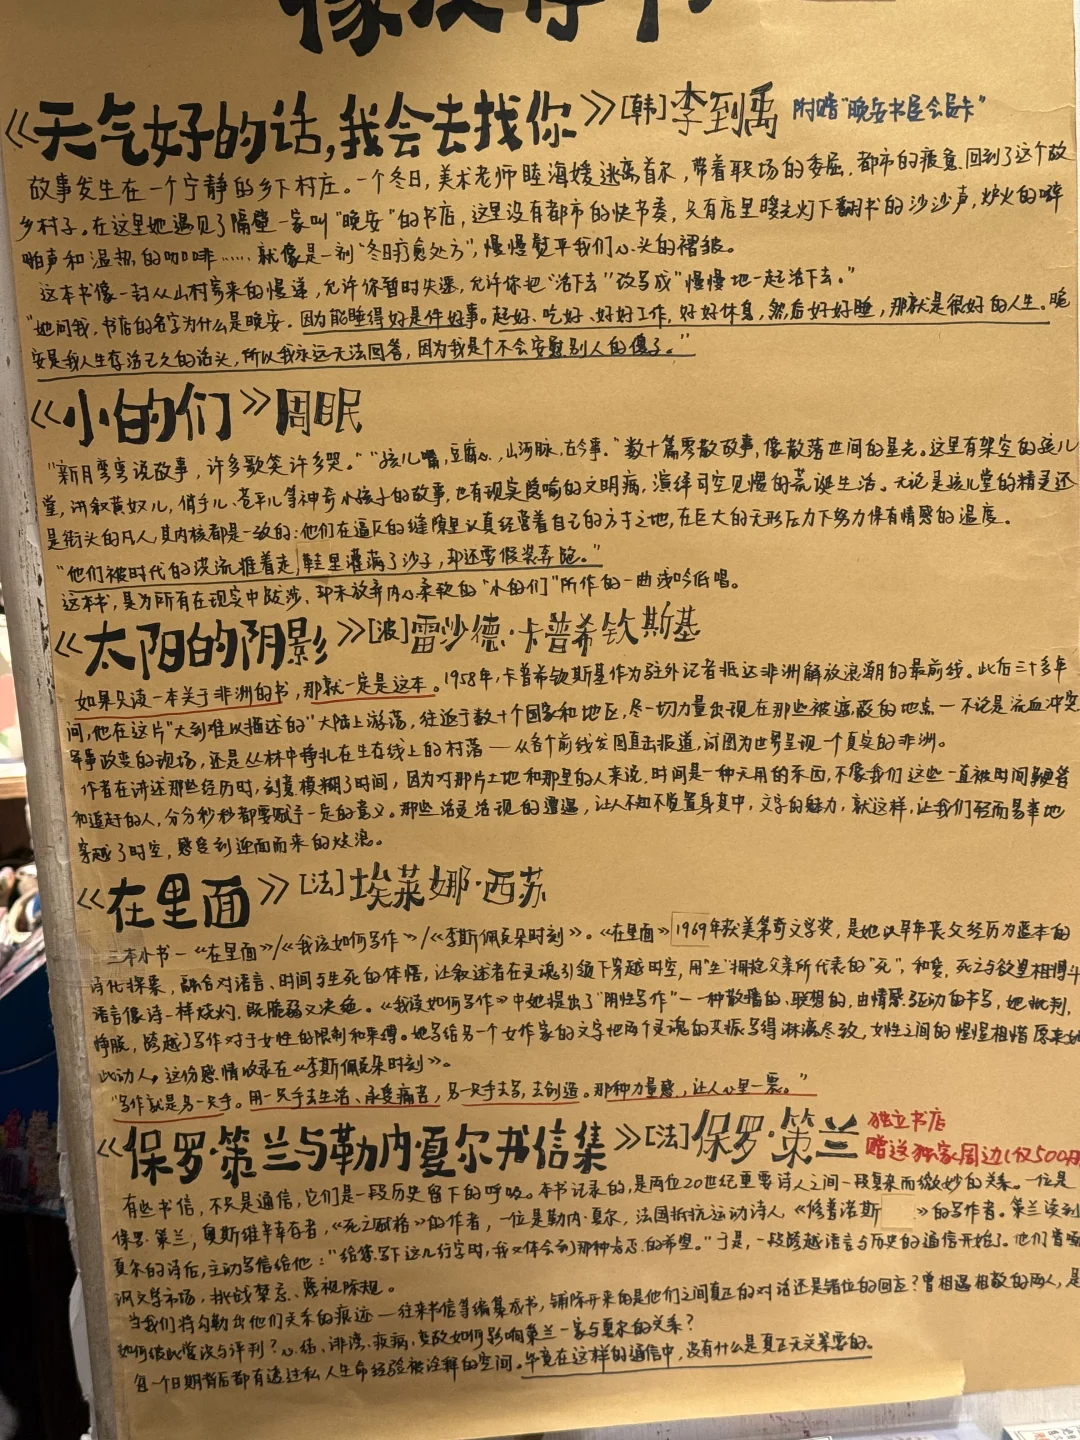 《天气好的话,我会去找你》[韩]李到禹 附赠“晚安书屋会员卡”
故事发生在一个宁静的乡下村庄。一个冬日,美术老师睦海媛逃离首尔,带着职场的委屈、都市的疲惫,回到了这个故
乡村子。在这里她遇见了隔壁一家叫“晚安”的书店,这里没有都市的快节奏,只有店里暖光灯下翻书的沙沙声,炉火的噼
啪声和温热的咖啡……就像是一剂“冬日疗愈处方”,慢慢熨平我们心头的褶皱。
这本书像一封从山村寄来的慢递,允许你暂时失速,允许你把“活下去”改写成“慢慢地一起活下去。”
“她问我,书店的名字为什么是晚安。因为能睡得好是件好事。起好、吃好、好好工作,好好休息,然后好好睡,那就是很好的人生。晚
安是我人生存活已久的话头,所以我永远无法回答,因为我是个不会安慰别人的傻子。”
《小的们》周眠
“新月弯弯说故事,许多歌笑许多哭。”“孩儿嘴,豆腐心,山河脉,古今事。”数十篇零散故事,像散落世间的星光。这里有架空的孩儿
堂,讲叙黄奴儿,俏手儿、苍平儿等神奇小孩子的故事,也有现实隐喻的文明病,演绎司空见惯的荒诞生活。无论是孩儿堂的精灵还
是街头的凡人,其内核都是一致的:他们在逼仄的缝隙里认真经营着自己的方寸之地,在巨大的无形压力下努力保有情感的温度。
“他们被时代的洪流推着走,鞋里灌满了沙子,却还要假装奔跑。”
这本书,是为所有在现实中跋涉、却未放弃内心柔软的“小的们”所作的一曲浅吟低唱。
《太阳的阴影》[波]雷沙德·卡普希钦斯基
如果只读一本关于非洲的书,那就一定是这本。1958年,卡普希钦斯基作为驻外记者抵达非洲解放浪潮的最前线。此后三十多年
间,他在这片“大到难以描述的”大陆上游荡,往返于数十个国家和地区,尽一切力量出现在那些被遮蔽的地点——不论是流血冲突
军事政变的现场,还是丛林中挣扎在生存线上的村落——从各个前线发回直击报道,试图为世界呈现一个真实的非洲。
作者在讲述那些经历时,刻意模糊了时间,因为对那片土地和那里的人来说,时间是一种无用的东西,不像我们这些一直被时间鞭笞
和追赶的人,分分秒秒都要赋予一定的意义。那些活灵活现的遭遇,让人不知不觉置身其中,文字的魅力,就这样,让我们轻而易举地
穿越了时空,感受到迎面而来的炽浪。
《在里面》[法]埃莱娜·西苏
三本小书——《在里面》/《我该如何写作》/《李斯佩克朵时刻》。《在里面》1969年获美第奇文学奖,是她以早年丧父经历为蓝本的
诗化探索,融合对语言、时间与生死的体悟,让叙述者在灵魂引领下穿越时空,用“生”拥抱父亲所代表的“死”,和爱,死亡与欲望相搏斗
语言像诗一样炽灼,既脆弱又决绝。《我该如何写作》中她提出了“阴性写作”——一种散播的、联想的,由情感驱动的书写,她批判,
挣脱,跨越了写作对于女性的限制和束缚。她写给另一个女作家的文字把两个灵魂的共振写得淋漓尽致,女性之间的惺惺相惜原来如
此动人。这份感情收录在《李斯佩克朵时刻》。
“写作就是另一只手。用一只手去生活、承受痛苦,另一只手去写,去创造。那种力量感,让人心里一震。”
《保罗·策兰与勒内·夏尔书信集》[法]保罗·策兰 独立书店
赠送独家周边(仅500册
有些书信,不只是通信,它们是一段历史留下的呼吸。本书记录的,是两位20世纪重要诗人之间一段复杂而微妙的关系。一位是
保罗·策兰,奥斯维辛幸存者,《死亡赋格》的作者,一位是勒内·夏尔,法国抵抗运动诗人《修普诺斯 》的写作者。策兰读到
夏尔的诗后,主动写信给他:“给您写下这几行字时,我又体会到那种忐忑的希望。”于是,一段跨越语言与历史的通信开始了。他们
讽文学市场,挑战禁忌、蔑视陈规。
当我们将勾勒出他们关系的痕迹——往来书信等编集成书,铺陈开来的是他们之间真正的对话还是错位的回应?曾相遇相敬的两人,是
如何彼此赏读与评判?心结、诽谤、疾病、变故如何影响策兰一家与夏尔的关系?
每一个日期背后都有透过私人生命经验被诠释的空间。毕竟在这样的通信中,没有什么是真正无关紧要的。